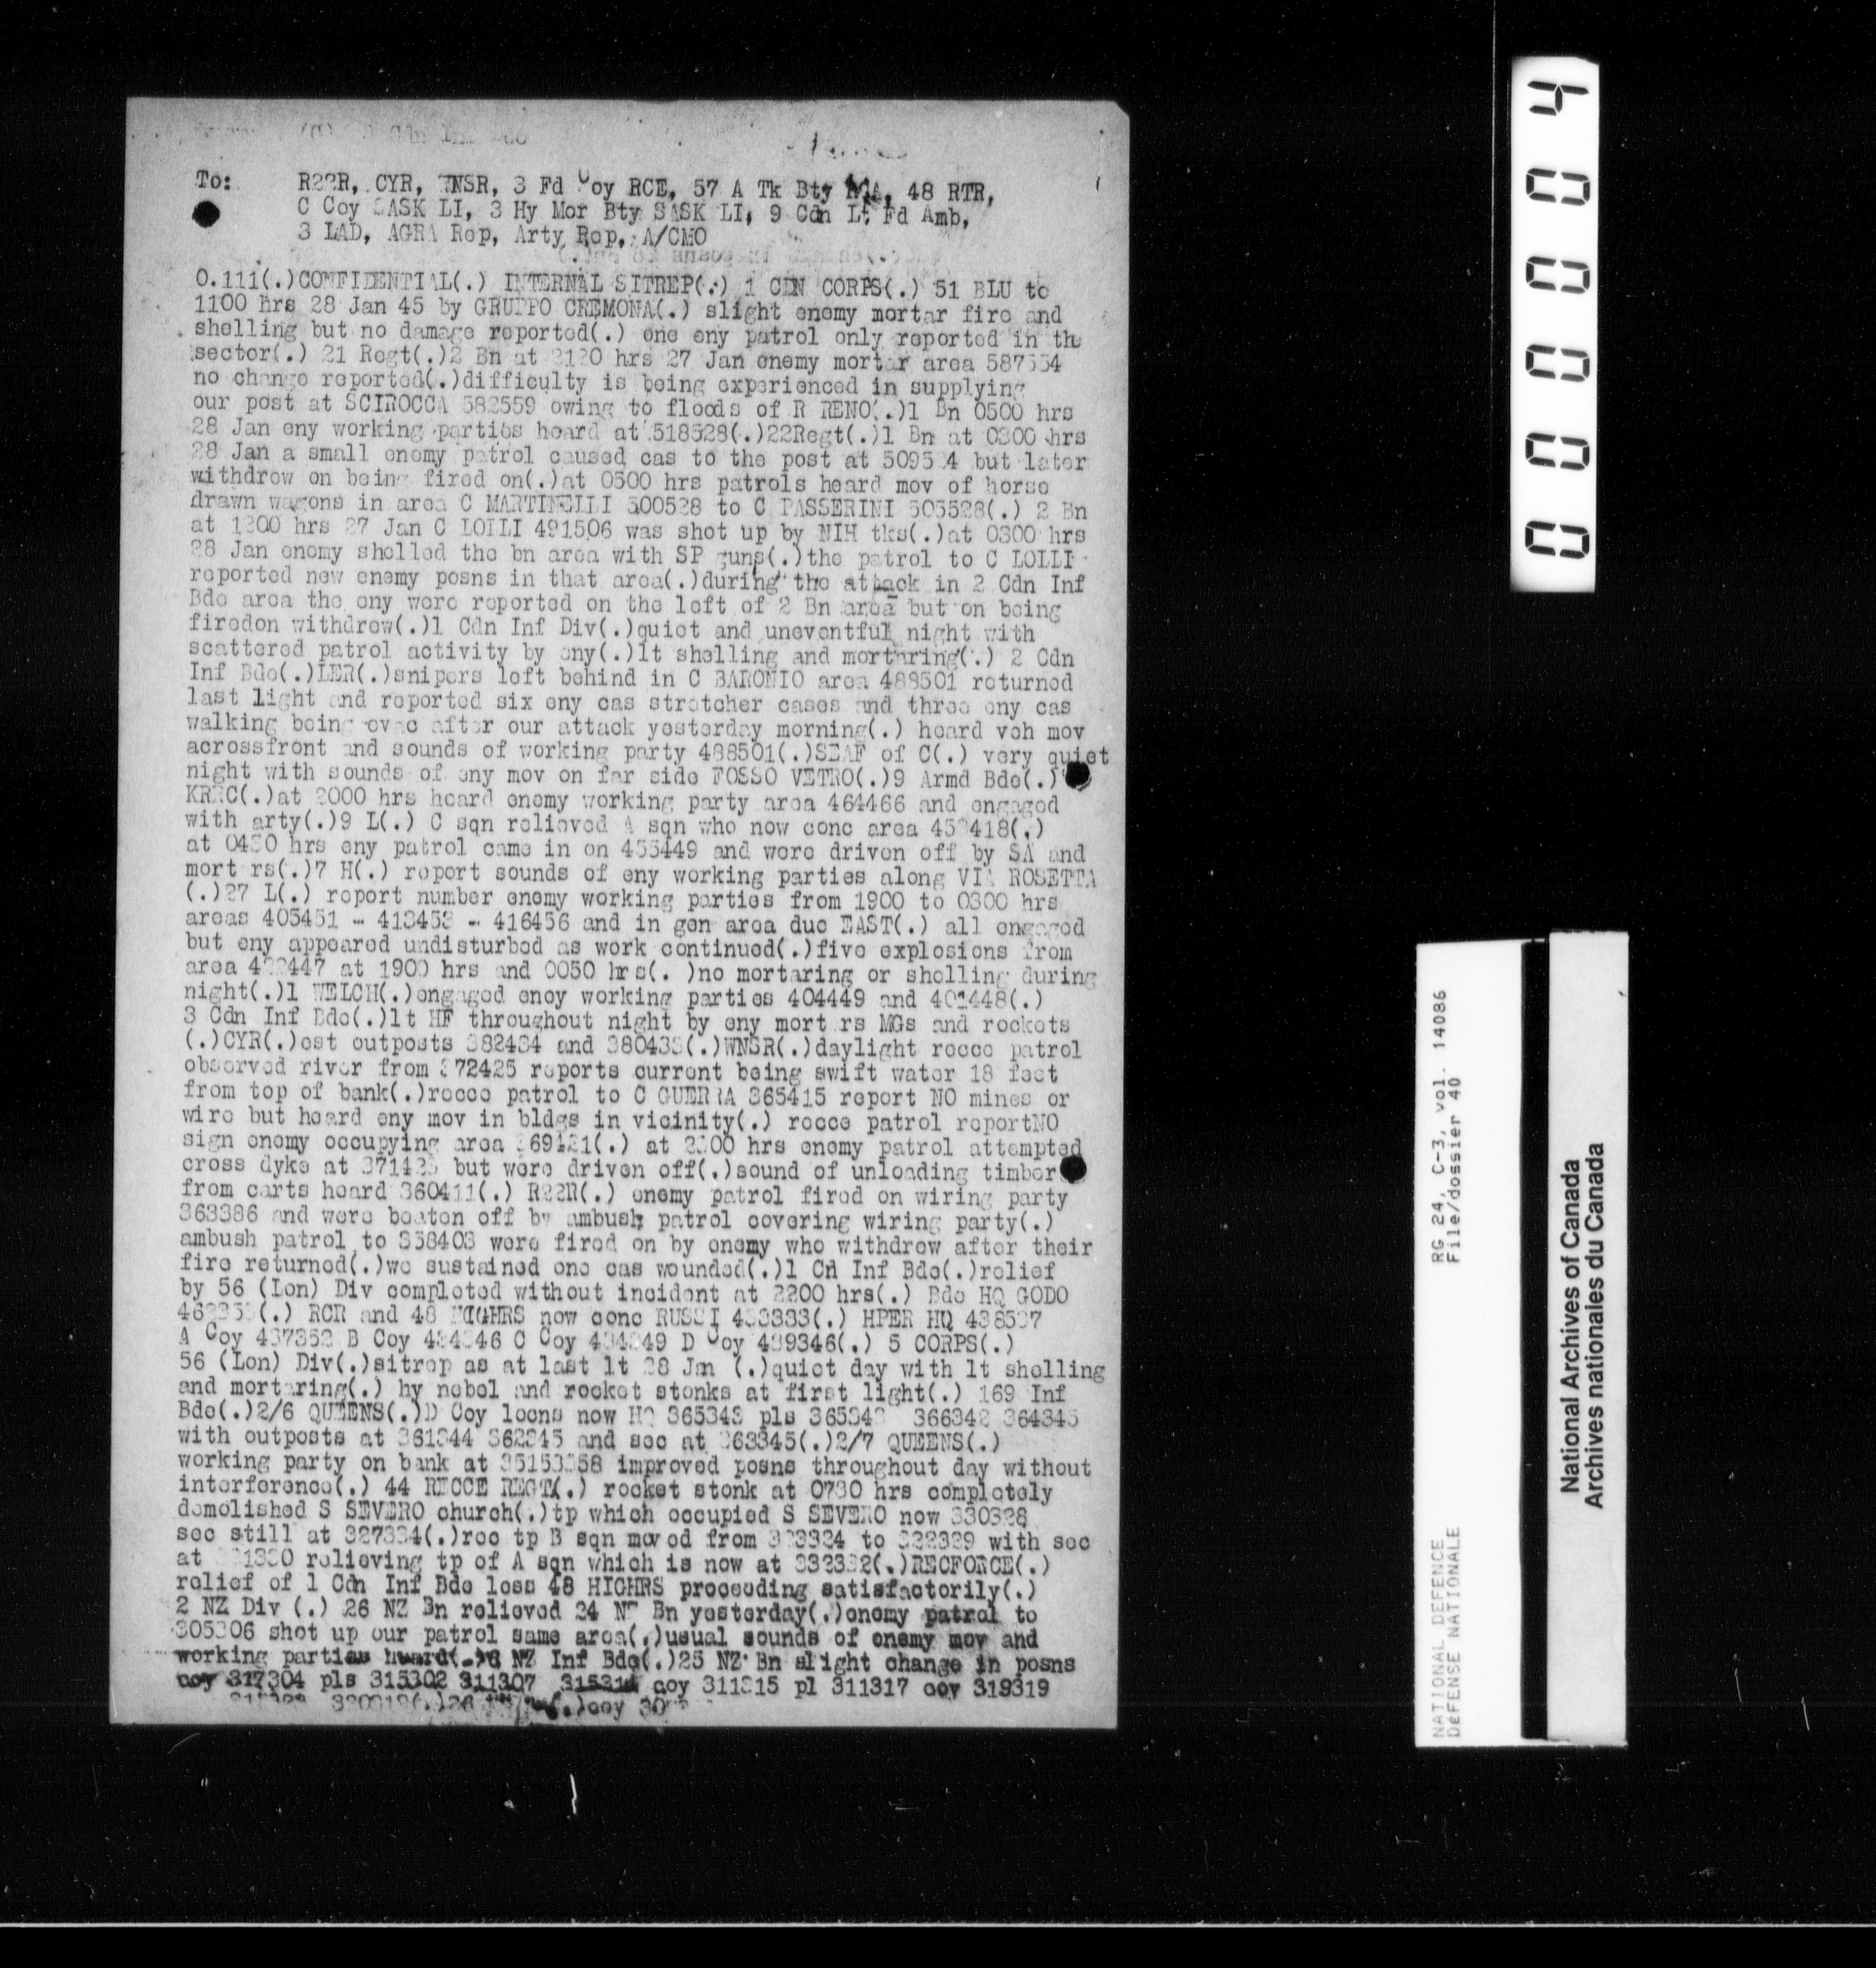 To: R22R, CYR, WNSR, 3 Fd Coy RCE, 57 A Tk Bty RCA, 48 RTR,
C Coy SASK LI, 3 Hy Mor Bty SASK LI, 9 Cdn Lt Fd Amb,
3 LAD, AGRA Rep, Arty Rep, A/CMO
O.111(.)CONFIDENTIAL(.) INTERNAL SITREP(.) 1 CDN CORPS(.) 51 BLU to
1100 hrs 28 Jan 45 by GRUPPO CREMONA(.) slight enemy mortar fire and
shelling but no damage reported(.) one eny patrol only reported in the
sector(.) 21 Regt(.)2 Bn at hrs 27 Jan enemy mortar area 587554
no change reported(.)difficulty is being experienced in supplying
our post at SCIROCCA 582559 owing to floods of R RENO(.)1 Bn 0500 hrs
28 Jan eny working parties heard at 518528(.)22Regt(.)1 Bn at 0300 hrs
28 Jan a small enemy patrol caused cas to the post at but later
withdrew on being fired on(.)at 0500 hrs patrols heard mov of horse
drawn wagons in area C MARTINELLI 500528 to C PASSERINI 505528(.) 2 Bn
at hrs 27 Jan C LOLLI 491506 was shot up by NIH tks(.)at 0300 hrs
28 Jan enemy shelled the bn area with SP guns(.)the patrol to C LOLLI
reported new enemy posns in that area(.)during the attack in 2 Cdn Inf
Bde area the eny were reported on the left of 2 Bn area but on being
firedon withdrew(.)1 Cdn Inf Div(.)quiet and uneventful night with
scattered patrol activity by eny(.)lt shelling and mortaring(.) 2 Cdn
Inf Bde(.)LER(.)snipers left behind in C BARONIO area 488501 returned
last light and reported six eny cas stretcher cases and three eny cas
walking being evac after our attack yesterday morning(.) heard veh mov
acrossfront and sounds of working party 488501(.)SEAF of C(.) very quiet
night with sounds of eny mov on far side FOSSO VETRO(.)9 Armd Bde(.)
KRRC(.)at 2000 hrs heard enemy working party area 464466 and engaged
with arty(.)9 L(.) C sqn relieved A sqn who now conc area
at 0430 hrs eny patrol came in on 455449 and were driven off by SA and
mortars(.)7 H(.) report sounds of eny working parties along VIA ROSETTA
(.)27 L(.) report number enemy working parties from 1900 to 0300 hrs
areas 405451 - 413453 - 416456 and in gen area due EAST(.) all engaged
but eny appeared undisturbed as work continued(.)five explosions from
area at 1900 hrs and 0050 hrs(. )no mortaring or shelling during
night(.)1 WELCH(.)engaged eney working parties 404449 and
3 Cdn Inf Bde(.)lt HF throughout night by eny mortars MGs and rockets
(.)CYR(.)est outposts 382434 and 380433(.)WNSR(.)daylight recce patrol
observed river from 372425 reports current being swift water 18 feet
from top of bank(.)recce patrol to C GUERRA 365415 report NO mines or
wire but heard eny mov in bldgs in vicinity(.) recce patrol reportNO
sign enemy occupying area 369421(.) at 2300 hrs enemy patrol attempted
cross dyke at but were driven off(.)sound of unloading timber
from carts heard 360411(.) R22R(.) enemy patrol fired on wiring party
363386 and were beaten off by ambush patrol covering wiring party(.)
ambush patrol to 358403 were fired on by enemy who withdrew after their
fire returned(.)we sustained one cas wounded(.)1 Cdn Inf Bde(.)relief
by 56 (Lon) Div completed without incident at 2200 hrs(.) Bde HQ GODO
(.) RCR and 48 HIGHRS now conc RUSSI 433333(.) HPER HQ
A Coy 437352 B Coy C Coy D Coy 439346(.) 5 CORPS(.)
56 (Lon) Div(.)sitrep as at last lt 28 Jan (.)quiet day with lt shelling
and mortaring(.) hy nebel and rocket stonks at first light(.) 169 Inf
Bde(.)2/6 QUEENS(.)D Coy locns now HQ 365343 pls 366342 364345
with outposts at 361344 362345 and sec at 363345(.)2/7 QUEENS(.)
working party on bank at 35153358 improved posns throughout day without
interference(.) 44 RECCE REGT(.) rocket stonk at 0730 hrs completely
demolished S SEVERO church(.)tp which occupied S SEVERO now 330328
sec still at 327334(.)rec tp B sqn moved from to with sec
at relieving tp of A sqn which is now at 332332(.)RECFORCE(.)
relief of 1 Cdn Inf Bde less 48 HIGHRS proceeding satisfactorily(.)
2 NZ Div (.) 26 NZ Bn relieved 24 NZ Bn yesterday(.)enemy patrol to
305306 shot up our patrol same area(.)usual sounds of enemy mov and
working parties heard(.)6 NZ Inf Bde(.)25 NZ Bn slight change in posns
coy 317304 pls 315302 311307 315314 coy 311315 pl 311317 coy 319319
0 0 0 0 0 4
RG 24, C-3, vol. 14086
File/dossier 40
NATIONAL DEFENCE
DÉFENSE NATIONALE
National Archives of Canada
Archives nationales du Canada